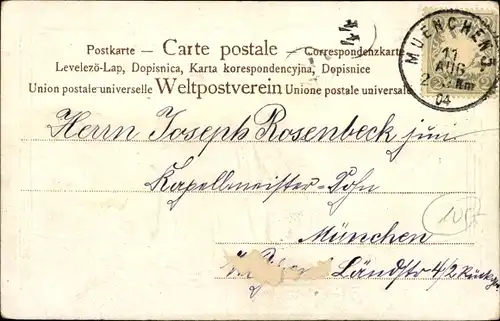 Postkarte – Carte postale – Correspondenzkarte
Levelezö-Lap, Dopisnica, Karta korespondencyjna, Dopisnice
Union postale universelle Weltpostverein Unione postale universale
MUENCHEN 3.
11
AUG
04
Herrn Joseph Rosenbeck jun
Kapellmeister-Sohn
München
Ländstr 4/2 Rückg.